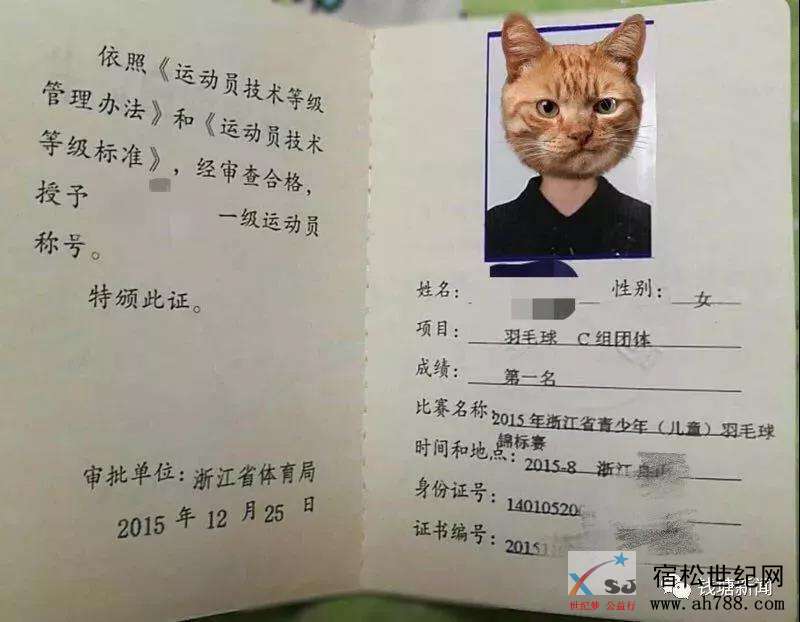 依照《运动员技术等级
管理办法》和《运动员技术
等级标准》，经审查合格，
授予 一级运动员
称号。
特颁此证。
审批单位：浙江省体育局
2015 年 12 月 25 日
姓名： 性别： 女
项目： 羽毛球 C组团体
成绩： 第一名
比赛名称：2015年浙江省青少年（儿童）羽毛球
锦标赛
时间和地点：2015-8 浙江
身份证号：14010520
证书编号：2015
XSJ
世纪梦 公益行
宿松世纪网
钱塘新闻
www.ah788.com